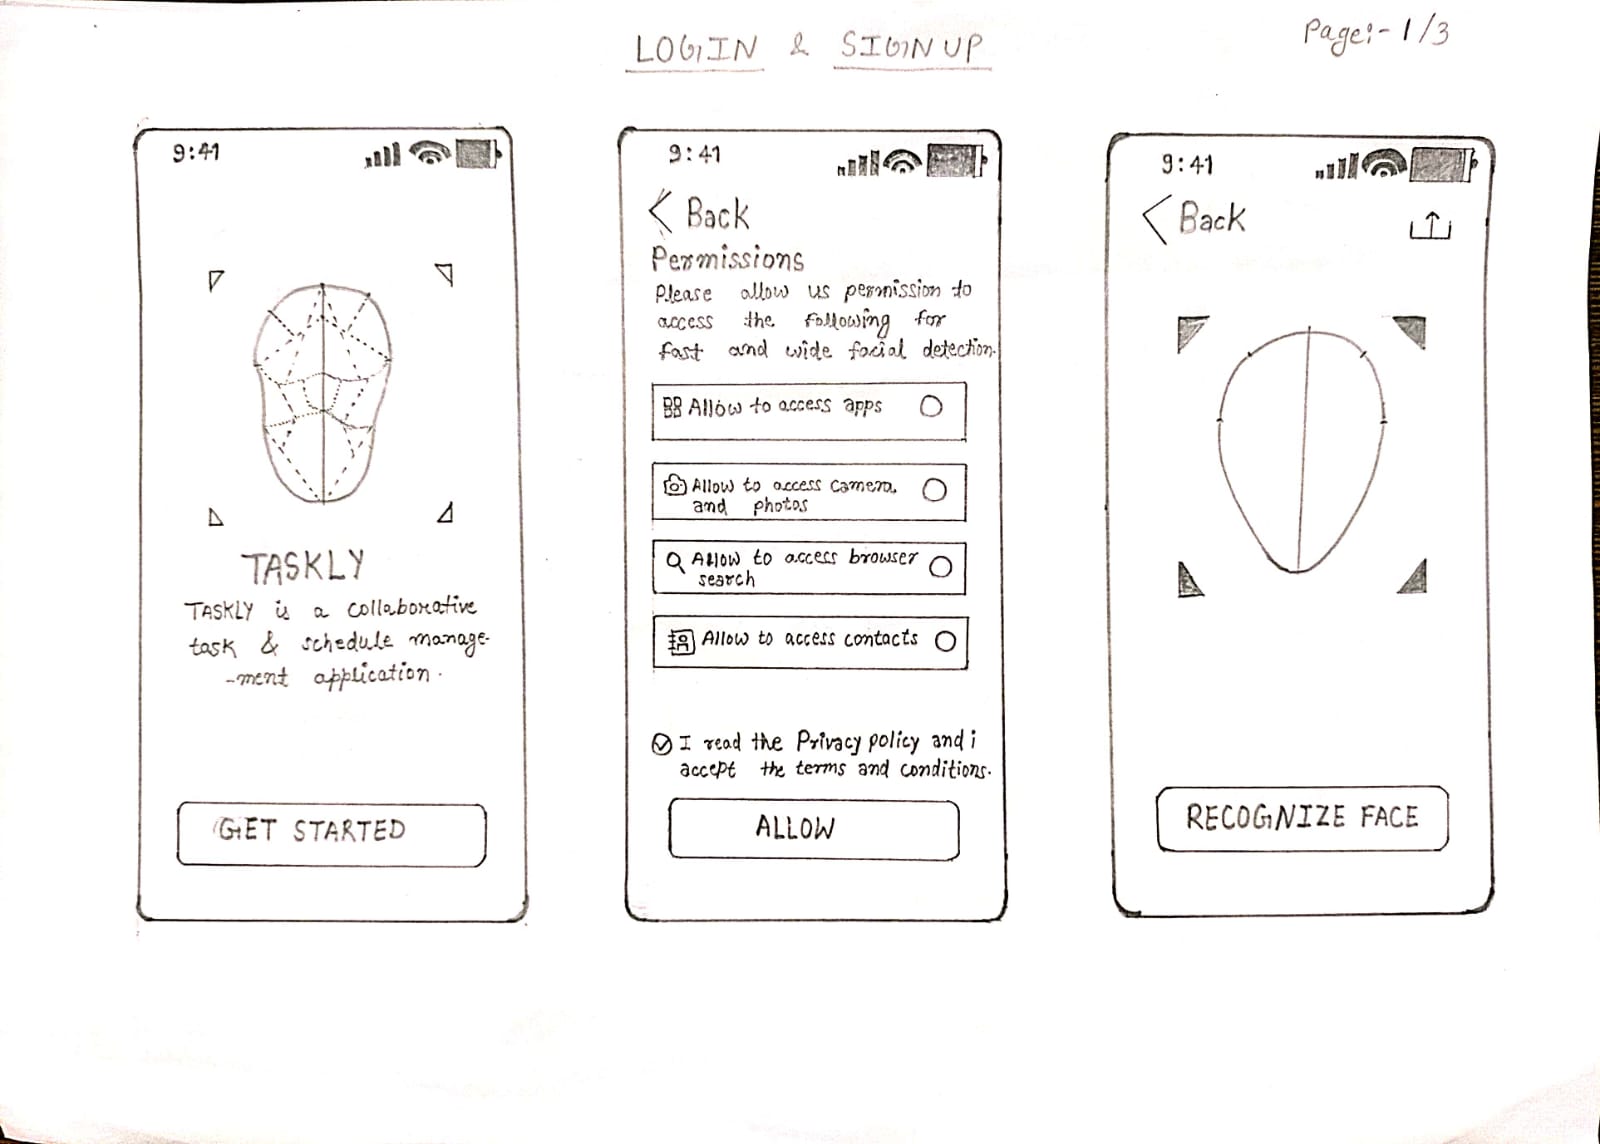 LOGIN & SIGNUP
Page:- 1/3
9:41
TASKLY
TASKLY is a collaborative
task & schedule manage-
-ment application.
GET STARTED
9:41
Back
Permissions
Please allow us permission to
access the following for
fast and wide facial detection.
Allow to access apps
Allow to access camera
and photos
Allow to access browser
search
Allow to access contacts
I read the Privacy policy and i
accept the terms and conditions.
ALLOW
9:41
Back
RECOGNIZE FACE